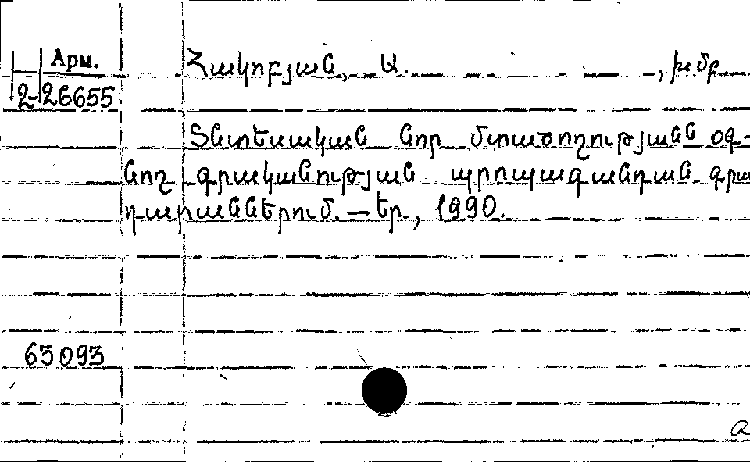 Арм.
2-26655
Հակոբյան, Ա. , խմբ.
Տնտեսական նոր մտածողությանն օգ-
նող գրականության պրոպագանդան գրա
դարաններում. — Եր., 1990.
63093
a